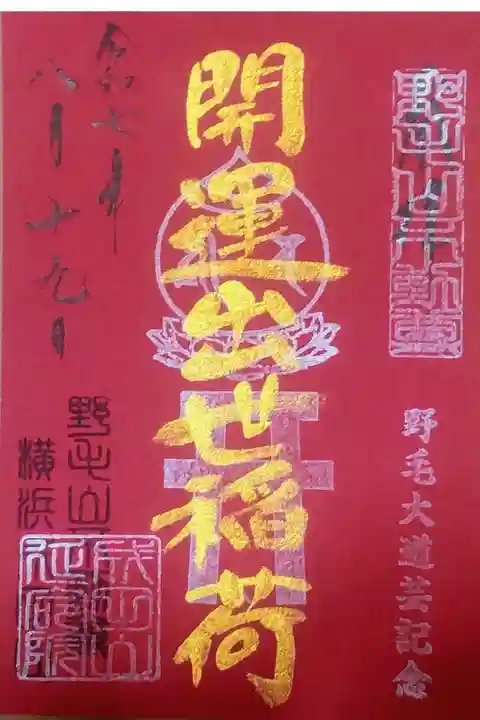 野毛山不動尊
野毛大道芸記念
開運出世稲荷
令和七年
八月十九日
野毛山
横浜
成田山
延命院